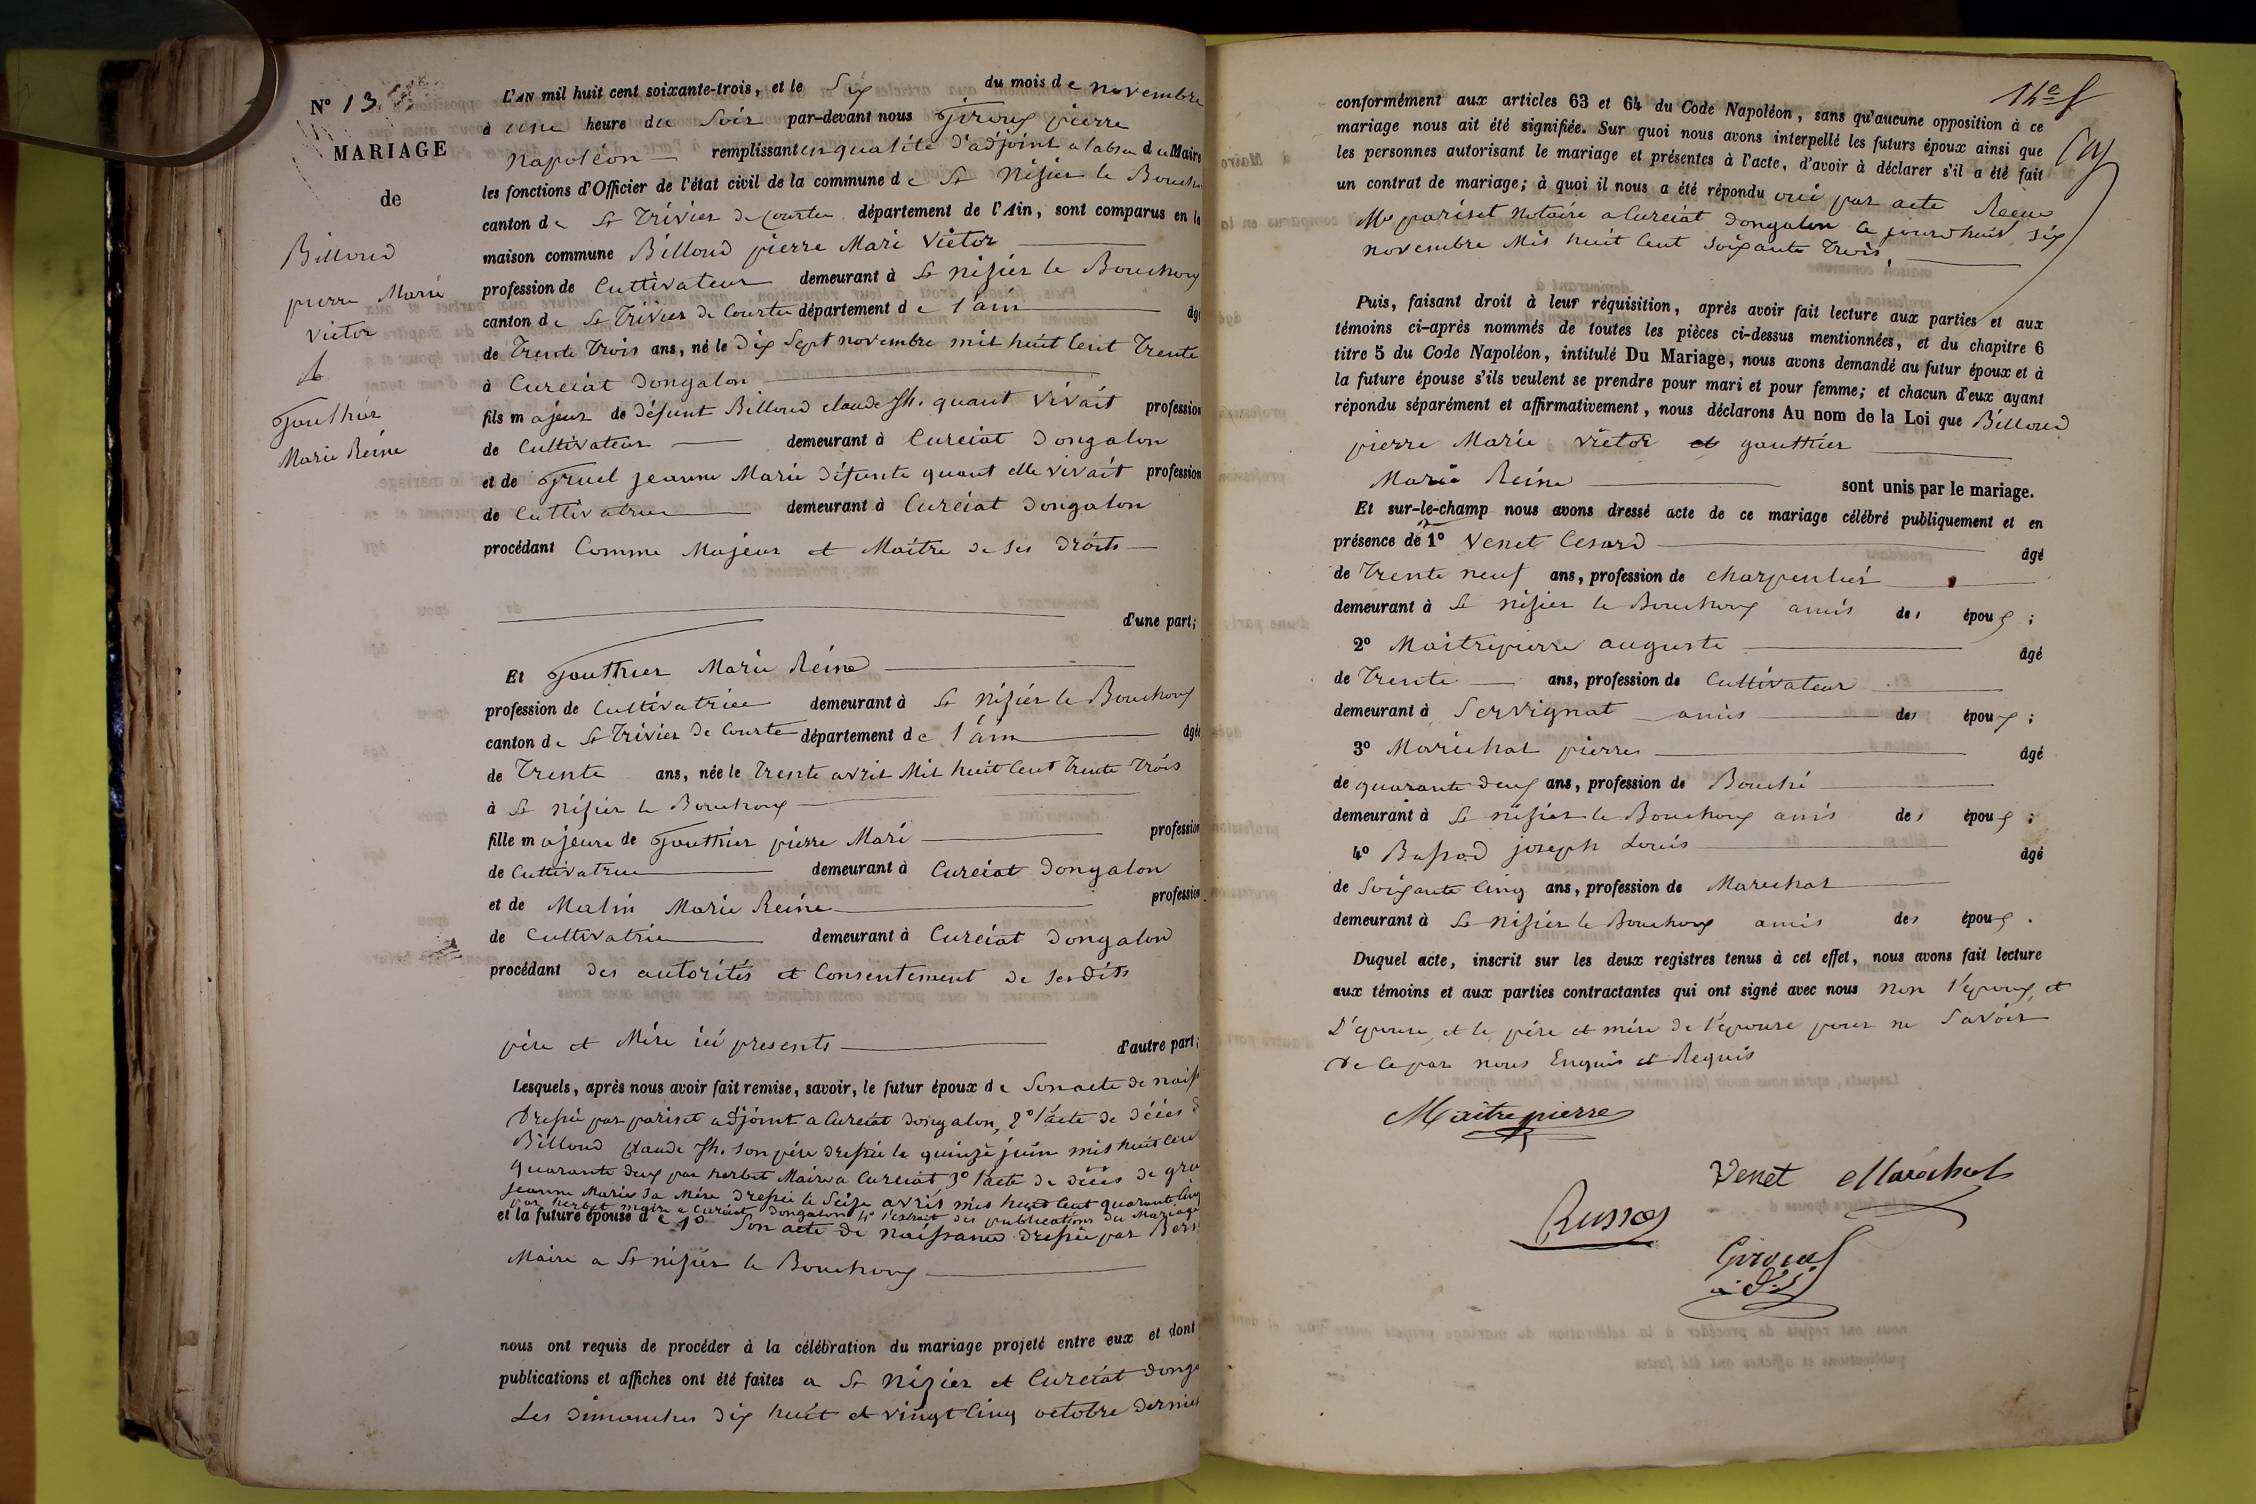 N° 13
MARIAGE
de
Billoud
pierre Marie
Victor
et
Gauthier
Marie Reine
L'AN mil huit cent soixante-trois, et le Six du mois de novembre
à une heure du Soir par-devant nous Giroux pierre
Napoléon remplissant en qualité d'adjoint a labsen du Maire
les fonctions d'Officier de l'état civil de la commune de St Nizier le Boucho
canton de St Trivier de Courtes département de l'Ain, sont comparus en la
maison commune Billoud pierre Mari Victor
profession de Cultivateur demeurant à St nizier le Bouchoux
canton de St Trivier de Courtes département de l'ain âgé
de Trente Trois ans, né le Dix Sept novembre mil huit Cent Trente
à Curciat Dongalon
fils majeur de défunt Billoud claude Jh. quant vivait profession
de Cultivateur demeurant à Curciat Dongalon
et de Gruel jeanne Marie défunte quant elle vivait profession
de Cultivatrice demeurant à Curciat Dongalon
procédant Comme Majeur et Maitre de ses droits
d'une part;
Et Gauthier Marie Reine
profession de Cultivatrice demeurant à St Nizier le Bouchoux
canton de St Trivier de Courte département de l'ain âgée
de Trente ans, née le Trente avril Mil huit Cent Trente Trois
à St Nizier le Bouchoux
fille majeure de Gauthier pierre Mari profession
de Cultivatrice demeurant à Curciat Dongalon
et de Merlin Marie Reine profession
de Cultivatrice demeurant à Curciat Dongalon
procédant des autorités et Consentement de Sesdits
père et Mère ici presents d'autre part;
Lesquels, après nous avoir fait remise, savoir, le futur époux de Son acte de naiss
Dressée par pariset adjoint a Curciat Dongalon, 2° l'acte de décès d
Billoud Claude Jh. Son père dressée le quinze juin mil huit Cent
quarante deux par herbet Maire a Curciat, 3° l'acte de décès de gru
jeanne Marie Sa Mère dressée le Seize avril mil huit Cent quarante Cinq
par herbet maire a Curciat Dongalon 4° l'extrait des publications du Mariage
et la future épouse de 1° Son acte de naissance dressée par Bern
Maire a St nizier le Bouchoux
nous ont requis de procéder à la célébration du mariage projeté entre eux et dont
publications et affiches ont été faites a St Nizier et Curciat Donga
Les dimanches dix huit et vingt Cinq octobre dernier
14e f
conformément aux articles 63 et 64 du Code Napoléon, sans qu'aucune opposition à ce
mariage nous ait été signifiée. Sur quoi nous avons interpellé les futurs époux ainsi que
les personnes autorisant le mariage et présentes à l'acte, d'avoir à déclarer s'il a été fait
un contrat de mariage; à quoi il nous a été répondu oui par acte Recu
Me pariset Notaire a Curciat Dongalon Ce jourdhuit Six
novembre Mil huit Cent Soixante Trois
Puis, faisant droit à leur réquisition, après avoir fait lecture aux parties et aux
témoins ci-après nommés de toutes les pièces ci-dessus mentionnées, et du chapitre 6
titre 5 du Code Napoléon, intitulé Du Mariage, nous avons demandé au futur époux et à
la future épouse s'ils veulent se prendre pour mari et pour femme; et chacun d'eux ayant
répondu séparément et affirmativement, nous déclarons Au nom de la Loi que Billoud
pierre Marie Victor et gauthier
Marie Reine sont unis par le mariage.
Et sur-le-champ nous avons dressé acte de ce mariage célébré publiquement et en
présence de 1° Venet Cesard âgé
de Trente neuf ans, profession de charpentier
demeurant à St nizier le Bouchoux amis des époux;
2° Maitrepierre auguste âgé
de Trente ans, profession de Cultivateur
demeurant à Servignat amis des époux;
3° Maréchal pierre âgé
de quarante deux ans, profession de Bouché
demeurant à St nizier le Bouchoux amis des époux;
4° joseph Louis âgé
de Soixante Cinq ans, profession de Marechal
demeurant à St Nizier le Bouchoux amis des époux.
Duquel acte, inscrit sur les deux registres tenus à cet effet, nous avons fait lecture
aux témoins et aux parties contractantes qui ont signé avec nous non l'epoux, et
L'epouse, et le père et mère de l'epouse pour ne Savoir
De Ce par nous Enquis et Requis
Maitrepierre
Venet Maréchal
Giroux